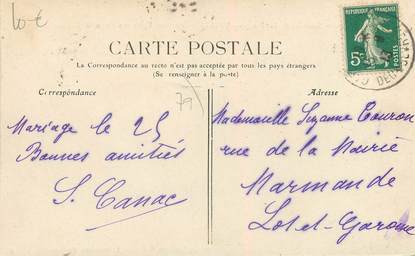 10 €
CARTE POSTALE
La Correspondance au recto n'est pas acceptée par tous les pays étrangers
(Se renseigner à la poste)
Correspondance
Adresse
REPUBLIQUE FRANÇAISE
5c
79
Mariage le 25
Bonnes amitiés
S. Canac
Mademoiselle Suzanne Couron
rue de la Mairie
Marmande
Lot-et-Garonne